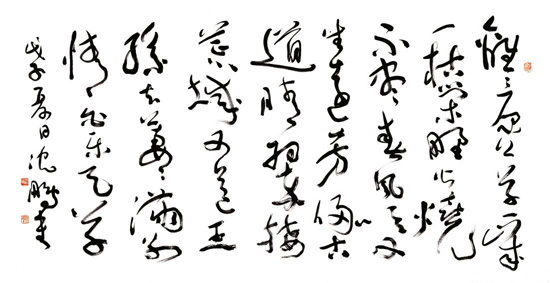 離〻原上草一歲
一枯榮野火燒
不盡春風吹又
生遠芳侵古
道晴翠接
荒城又送王
孫去萋〻滿別
情白樂天草
戊子夏日沈鵬書